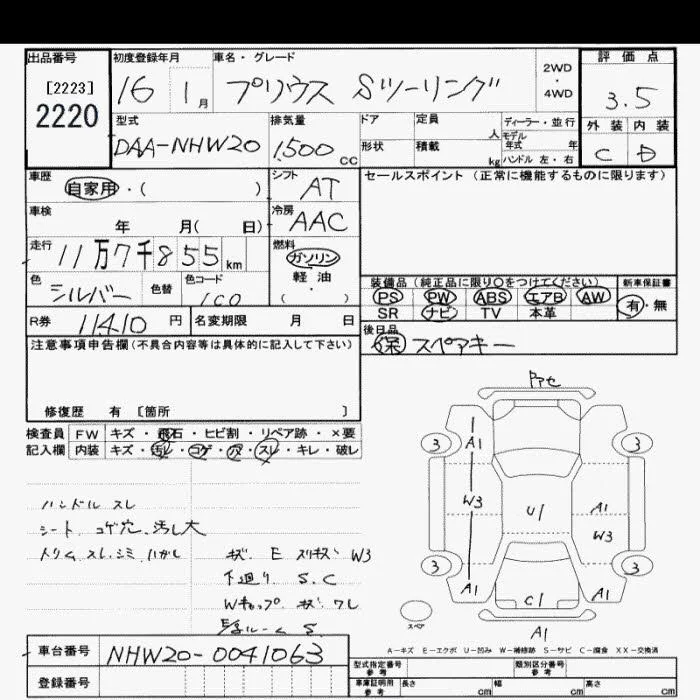 出品番号 初度登録年月 車名・グレード 評価点
[2223]
2220
16 1月 プリウス Sツーリング 2WD・4WD 3.5
型式 排気量 ドア 定員 人 ディーラー・並行 外装 内装
モデル年式 年
DAA-NHW20 1,500cc 形状 積載 kg ハンドル 左・右 C D
車歴 シフト セールスポイント (正常に機能するものに限ります)
自家用・( ) AT
車検 冷房
年 月( 日) AAC
走行 燃料
11万7千855km ガソリン
軽・油
( ・ )
色 色替 色コード 装備品(純正品に限り○をつけてください) 新車保証書
シルバー 1C0 PS PW ABS エアB AW 有・無
SR ナビ TV 本革
R券 11410円 名変期限 月 日 後日品
保 スペアキー
注意事項申告欄(不具合内容等は具体的に記入して下さい)
修復歴 有 [箇所 ]
検査員 FW キズ・飛石・ヒビ割・リペア跡・×要
記入欄 内装 キズ・汚レ・コゲ・穴・スレ・キレ・破レ
ハンドル スレ
シート コゲ穴、汚し大
トリム スレ、シミ ハガレ
キズ E スリキズ W3
下廻り S.C
Wキャップ キズ ワレ
S
A1 3 3
W3 U1 A1
W3
3 3
A1 C1 A1
スペア A1
A-キズ E-エクボ U-凹み W-補修跡 S-サビ C-腐食 XX-交換済
車台番号 NHW20-0041063
登録番号
型式指定番号 参考 類別区分番号 参考
車庫証明用 参考 長さ cm 幅 cm 高さ cm